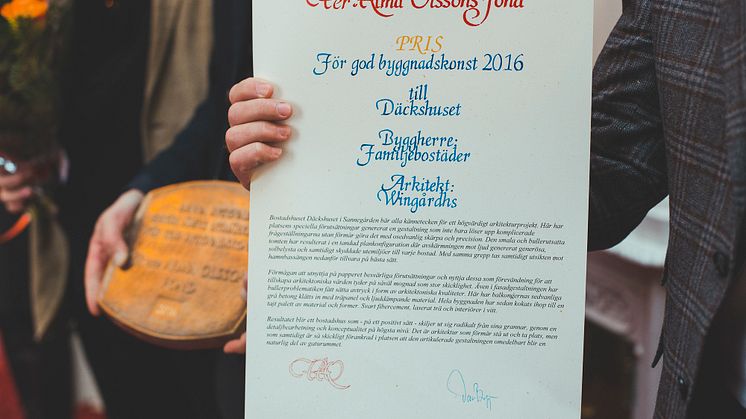 Per Alma Olssons Fond
PRIS
För god byggnadskonst 2016
till
Däckshuset
Byggherre:
Familjebostäder
Arkitekt:
Wingårdhs
Bostadshuset Däckshuset i Sannegården bär alla kännetecken för ett högvärdigt arkitekturprojekt. Här har
platsens speciella förutsättningar genererat en gestaltning som inte bara löser upp komplicerade
frågeställningarna utan förmår göra det med osedvanlig skärpa och precision. Den smala och bullerutsatta
tomten har resulterat i en tandad plankonfiguration där avskärmningen mot ljud genererat generösa,
solbelysta och samtidigt skyddade utemiljöer till varje bostad. Med samma grepp tas samtidigt utsikten mot
hamnbassängen nedanför tillvara på bästa sätt.
Förmågan att utnyttja på papperet besvärliga förutsättningar och nyttja dessa som förevändning för att
tillskapa arkitektoniska värden tyder på såväl mognad som stor skicklighet. Även i fasadgestaltningen har
bullerproblematiken fått sätta avtryck i form av arkitektoniska kvaliteter. Här har balkongernas sedvanliga
grå betong klätts in med träpanel och ljuddämpande material. Hela byggnaden har sedan kokats ihop till en
tajt palett av material och former. Svart fibercement, laserat trä och interiörer i vitt.
Resultatet blir ett bostadshus som - på ett positivt sätt - skiljer ut sig radikalt från sina grannar, genom en
detaljbearbetning och konceptualitet på högsta nivå. Det är arkitektur som förmår stå ut och ta plats, men
som samtidigt är så skickligt förankrad i platsen att den artikulerade gestaltningen omedelbart blir en
naturlig del av gaturummet.